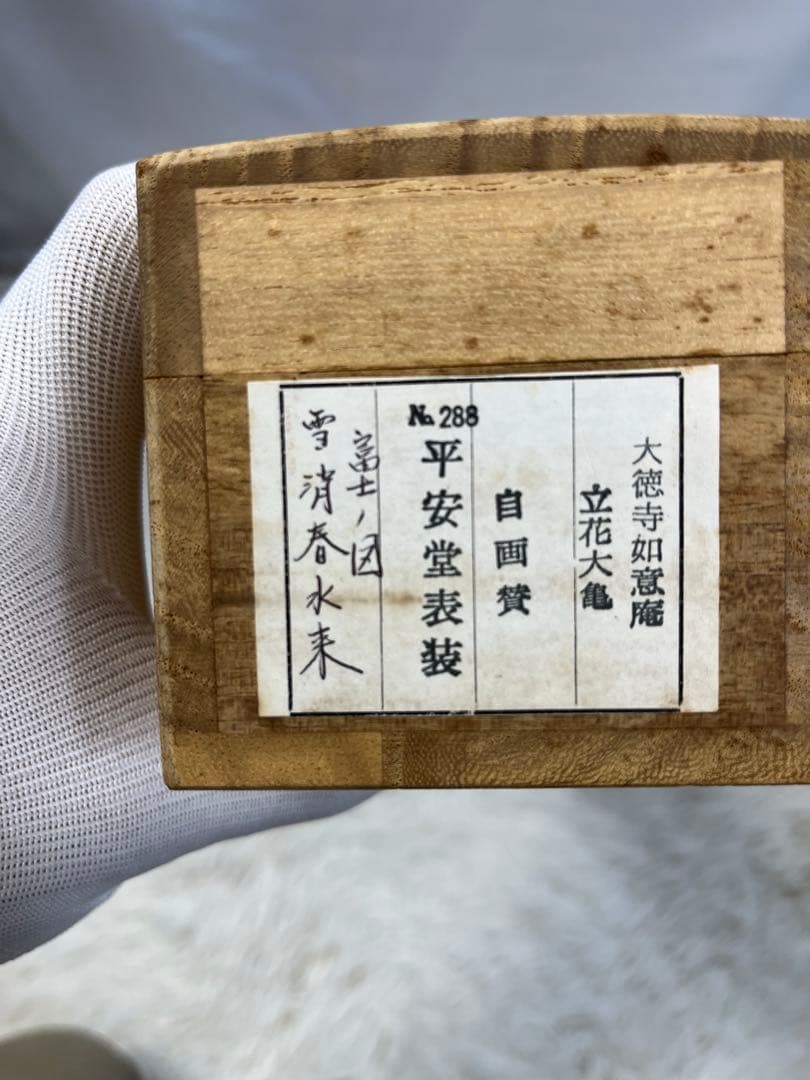 大徳寺如意庵
立花大亀
自画賛
№288
平安堂表装
富士ノ図
雪消春水来